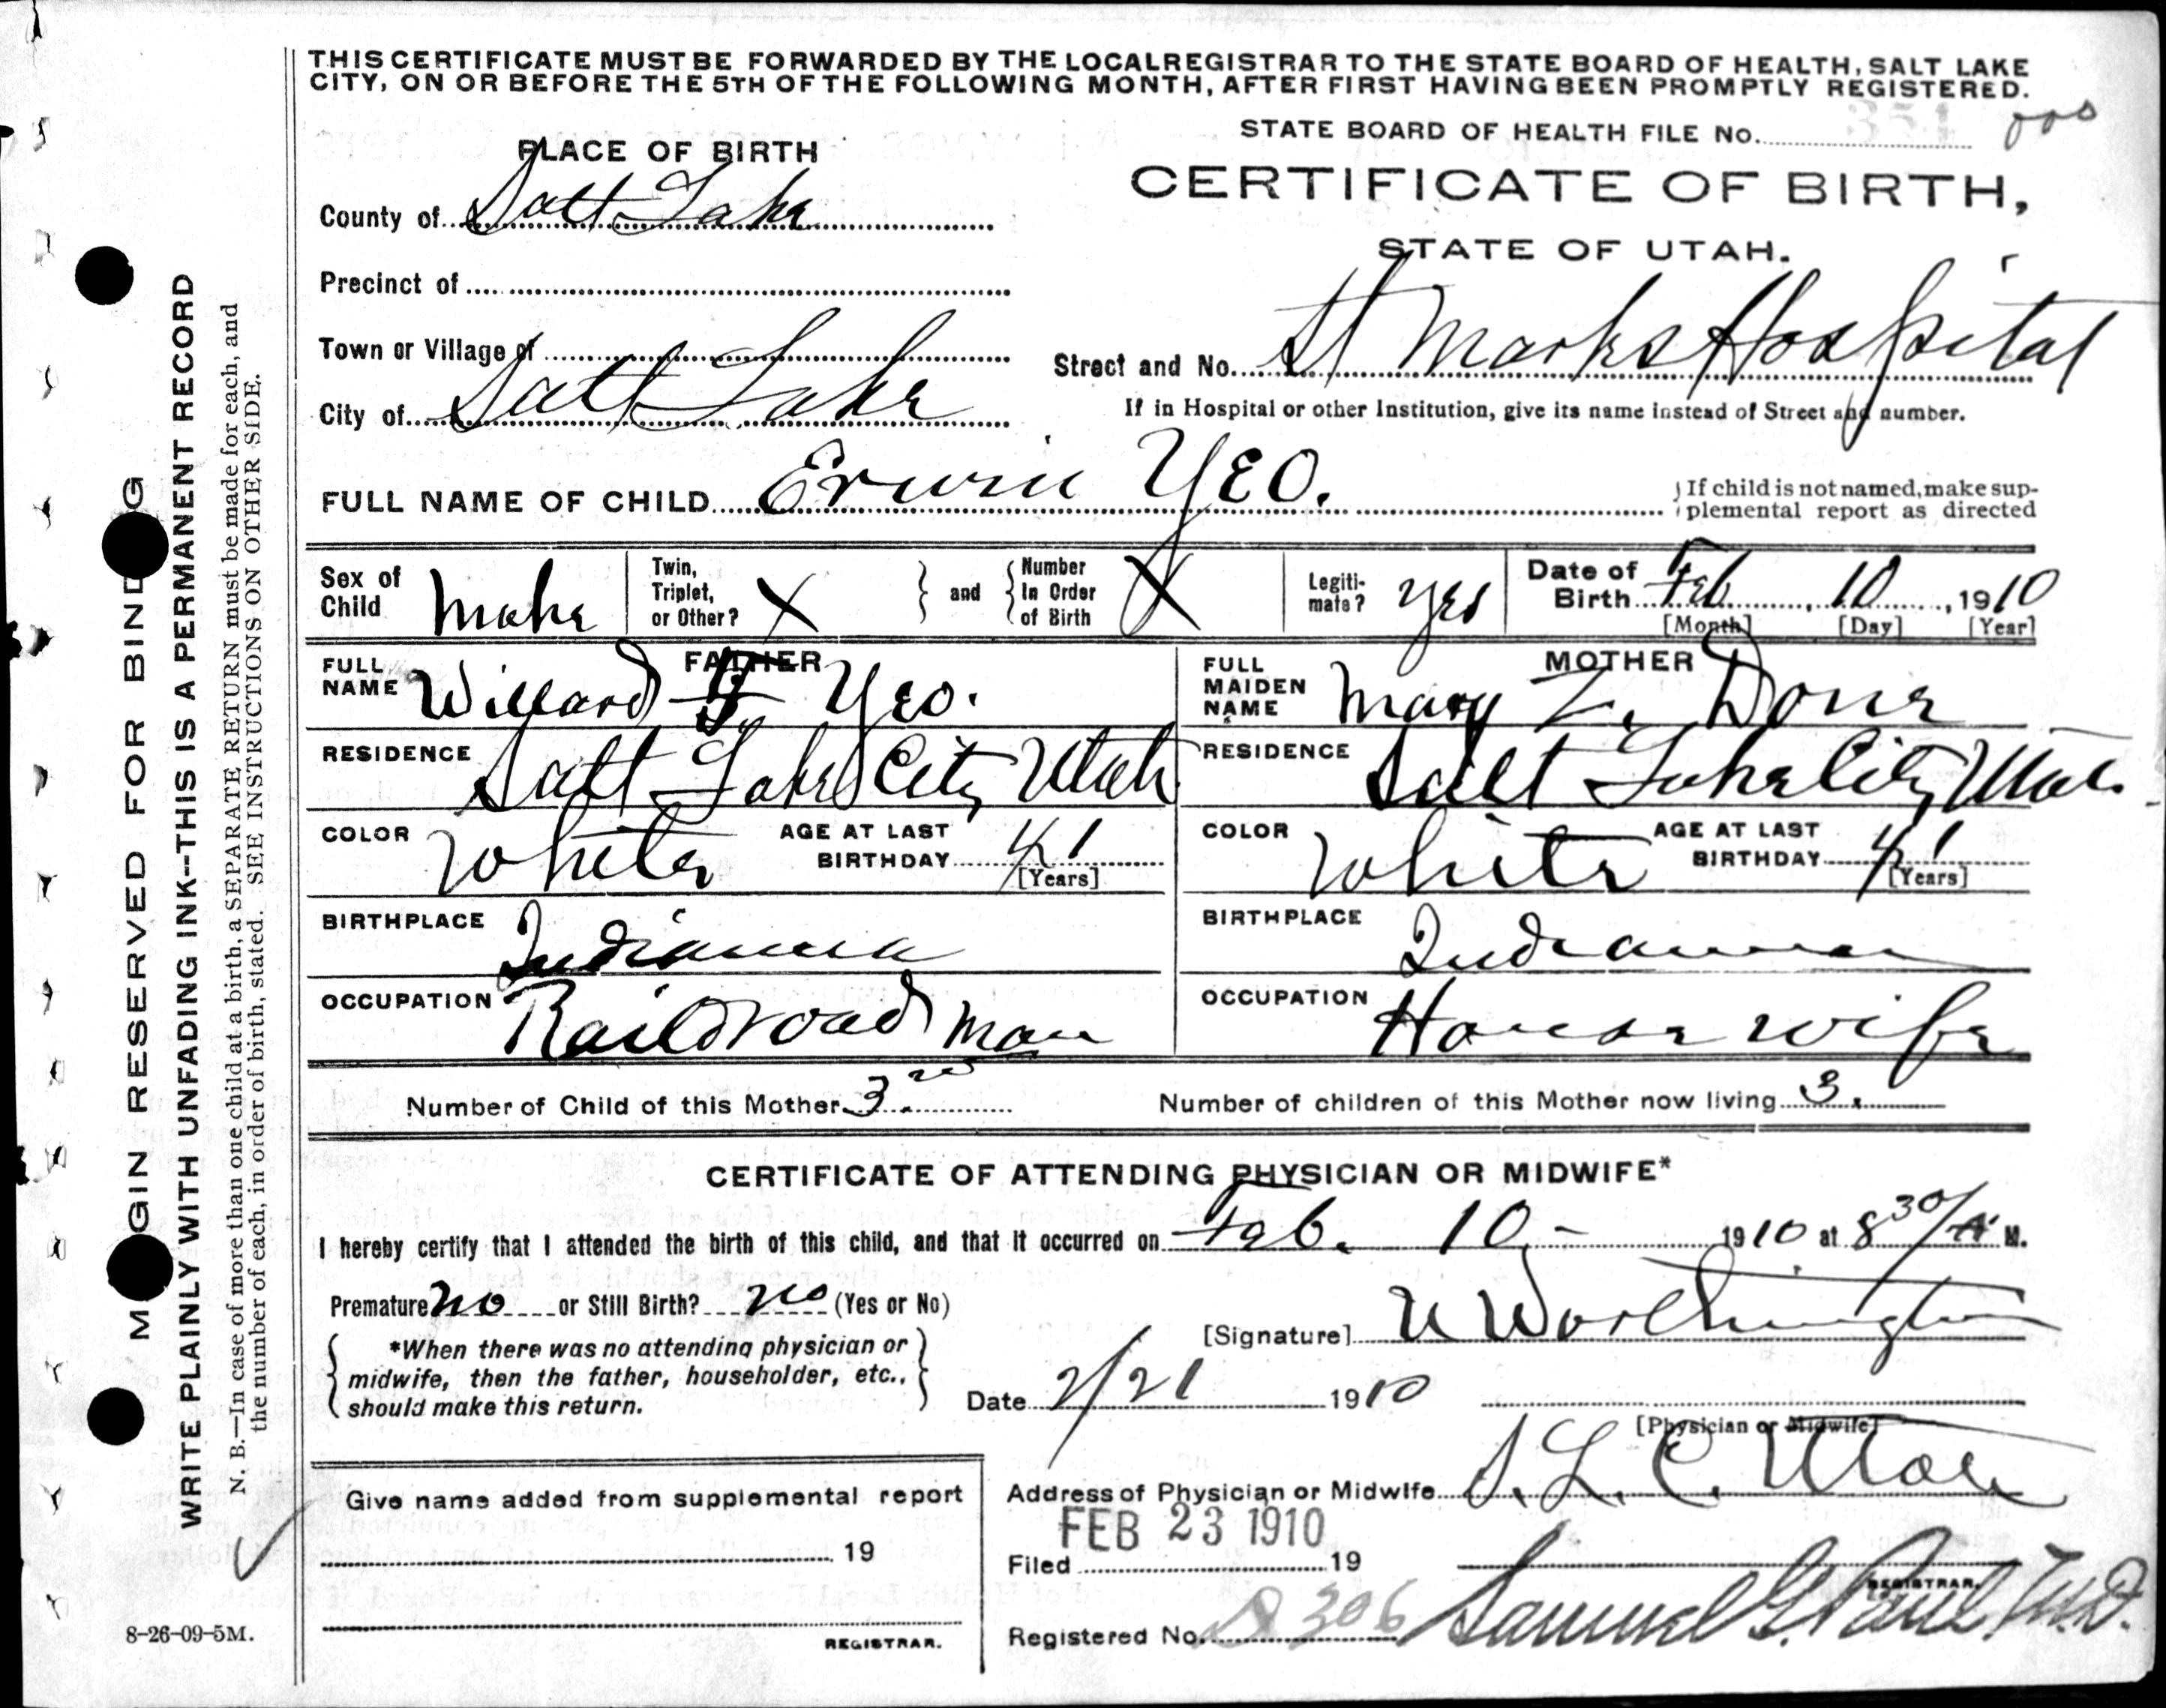 THIS CERTIFICATE MUST BE FORWARDED BY THE LOCAL REGISTRAR TO THE STATE BOARD OF HEALTH, SALT LAKE
CITY, ON OR BEFORE THE 5TH OF THE FOLLOWING MONTH, AFTER FIRST HAVING BEEN PROMPTLY REGISTERED.
STATE BOARD OF HEALTH FILE No. 351
PLACE OF BIRTH
CERTIFICATE OF BIRTH,
STATE OF UTAH.
County of Salt Lake
Precinct of
Town or Village of
Street and No. St Marks Hospital
City of Salt Lake
If in Hospital or other Institution, give its name instead of Street and number.
FULL NAME OF CHILD Erwin YEO.
If child is not named, make sup-
plemental report as directed
Sex of Child Male
Twin, Triplet, or Other? X
and
Number In Order of Birth X
Legiti-mate? Yes
Date of Birth Feb 10, 1910
[Month] [Day] [Year]
FATHER
FULL NAME Willard Yeo.
RESIDENCE Salt Lake City Utah
COLOR White
AGE AT LAST BIRTHDAY 41
[Years]
BIRTHPLACE Indiana
OCCUPATION Railroad man
MOTHER
FULL MAIDEN NAME Mary Z. Done
RESIDENCE Salt Lake City Utah.
COLOR White
AGE AT LAST BIRTHDAY 41
[Years]
BIRTHPLACE Indiana
OCCUPATION House wife
Number of Child of this Mother 3
Number of children of this Mother now living 3.
CERTIFICATE OF ATTENDING PHYSICIAN OR MIDWIFE*
I hereby certify that I attended the birth of this child, and that it occurred on Feb. 10 - 1910 at 8 30/A M.
Premature No or Still Birth? no (Yes or No)
[Signature] U Worthington
*When there was no attending physician or
midwife, then the father, householder, etc.,
should make this return.
Date 2/21 1910
[Physician or Midwife]
Address of Physician or Midwife S. L. C. Utah
Give name added from supplemental report
19
REGISTRAR.
FEB 23 1910
Filed 19
REGISTRAR.
Registered No. 306 Samuel G. Paul, M.D.
8-26-09-5M.
MARGIN RESERVED FOR BINDING
WRITE PLAINLY WITH UNFADING INK--THIS IS A PERMANENT RECORD
N. B.—In case of more than one child at a birth, a SEPARATE RETURN must be made for each, and
the number of each, in order of birth, stated. SEE INSTRUCTIONS ON OTHER SIDE.